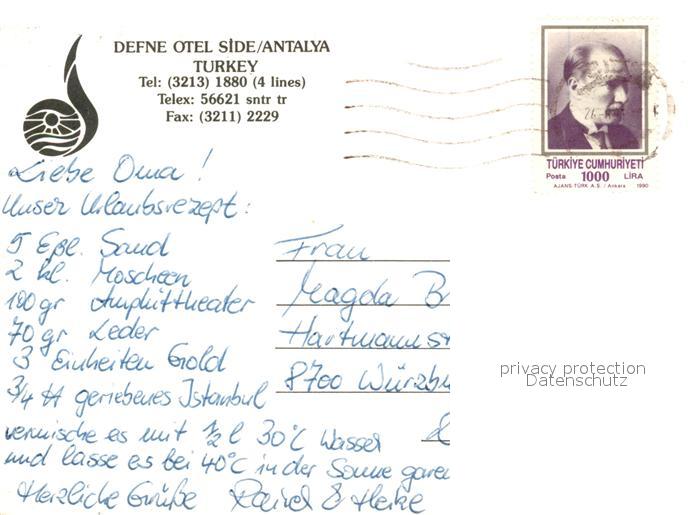 DEFNE OTEL SİDE/ANTALYA
TURKEY
Tel: (3213) 1880 (4 lines)
Telex: 56621 sntr tr
Fax: (3211) 2229
TÜRKİYE CUMHURİYETİ
Posta 1000 LİRA
AJANS-TÜRK A.Ş. / Ankara 1990
Liebe Oma!
Unser Urlaubsrezept:
5 Eßl. Sand
2 kl. Moscheen
100 gr Amphittheater
70 gr Leder
3 Einheiten Gold
3/4 ℔ geriebenes Istanbul
vermische es mit 1/2 l 30°C Wasser
und lasse es bei 40°C in der Sonne garen
Herzliche Grüße & Heike
Frau
Magda B
Hartmannstr
8700 Würzbu
privacy protection
Datenschutz